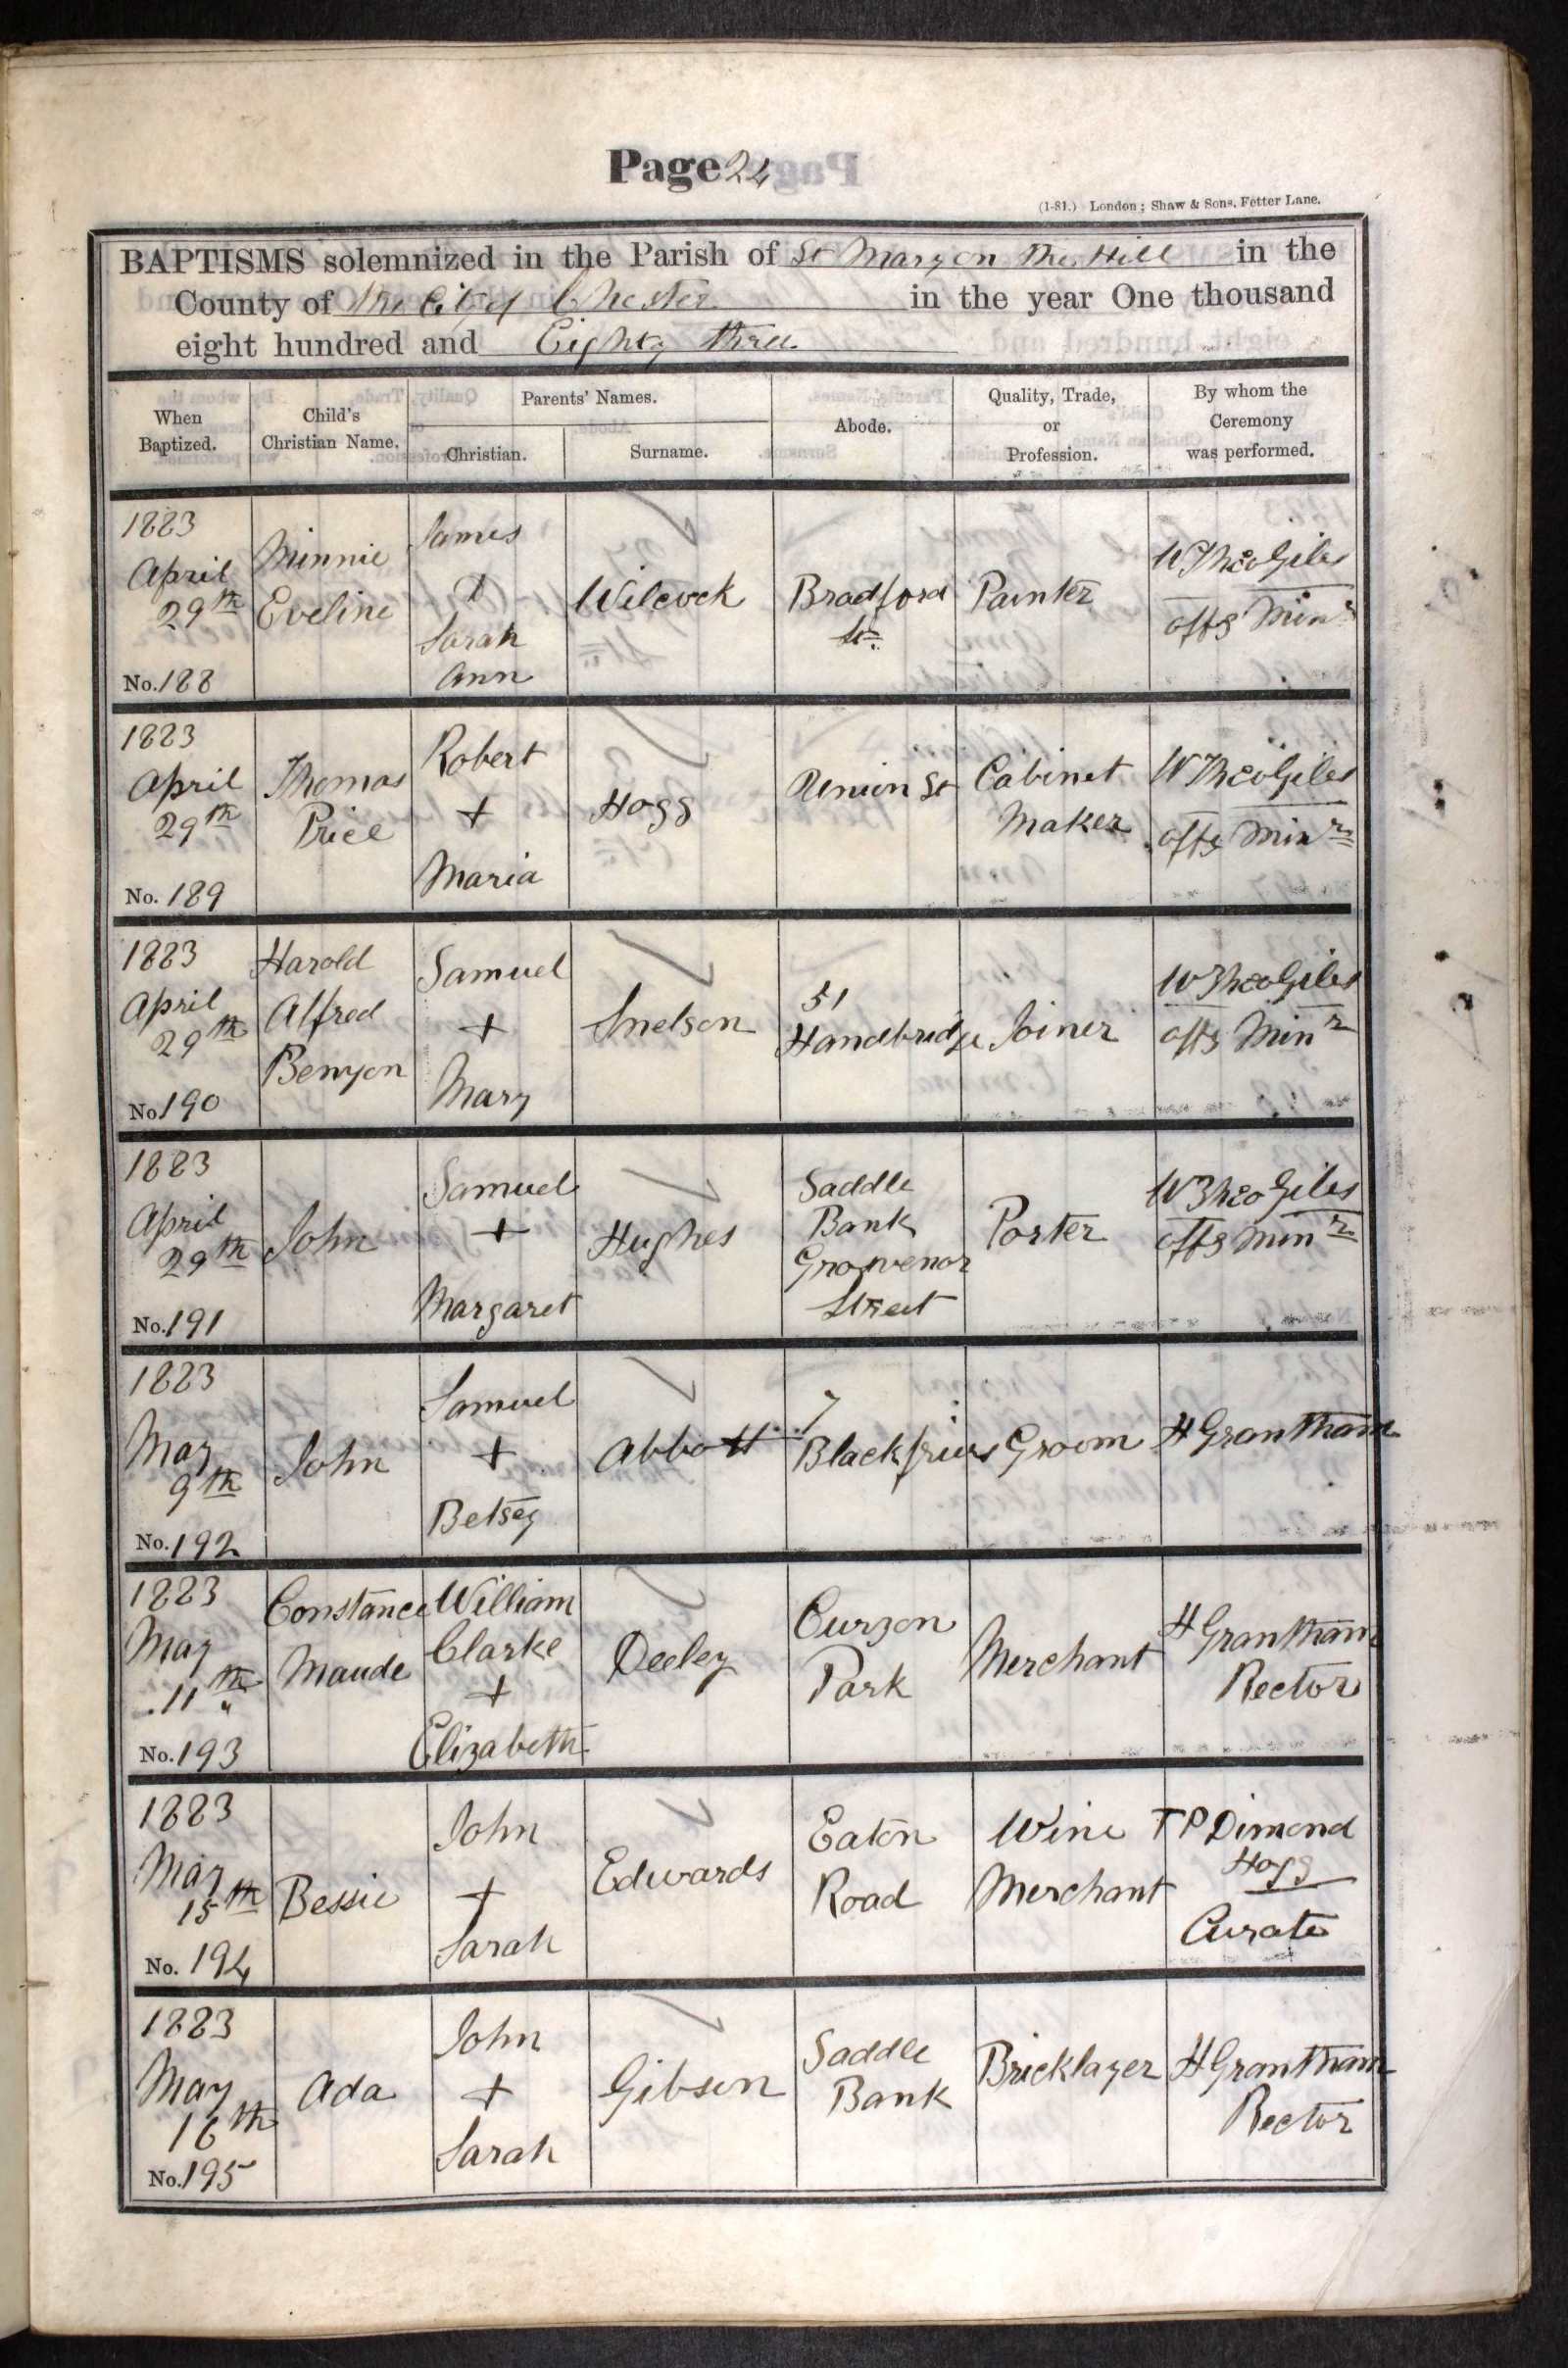 Page 24
(1-81.) London; Shaw & Sons, Fetter Lane.
BAPTISMS solemnized in the Parish of St Mary on the Hill in the
County of the City of Chester in the year One thousand
eight hundred and Eighty three
When Baptized.
Child's Christian Name.
Parents' Names.
Christian.
Surname.
Abode.
Quality, Trade, or Profession.
By whom the Ceremony was performed.
1883
April
29th
No. 188
Minnie
Eveline
James
+
Sarah
Ann
Wilcock
Bradford
St.
Painter
W Theo Giles
offg Minr
1883
April
29th
No. 189
Thomas
Price
Robert
+
Maria
Hogg
Union St
Cabinet
Maker
W Theo Giles
offg Minr
1883
April
29th
No. 190
Harold
Alfred
Benyon
Samuel
+
Mary
Snelson
51
Handbridge
Joiner
W Theo Giles
offg Minr
1883
April
29th
No. 191
John
Samuel
+
Margaret
Hughes
Saddle
Bank
Grosvenor
Street
Porter
W Theo Giles
offg Minr
1883
May
9th
No. 192
John
Samuel
+
Betsey
Abbott
7
Blackfriars
Groom
H Grantham
1883
May
11th
No. 193
Constance
Maude
William
Clarke
+
Elizabeth
Deeley
Curzon
Park
Merchant
H Grantham
Rector
1883
May
15th
No. 194
Bessie
John
+
Sarah
Edwards
Eaton
Road
Wine
Merchant
T P Dimond
Hogg
Curate
1883
May
16th
No. 195
Ada
John
+
Sarah
Gibson
Saddle
Bank
Bricklayer
H Grantham
Rector